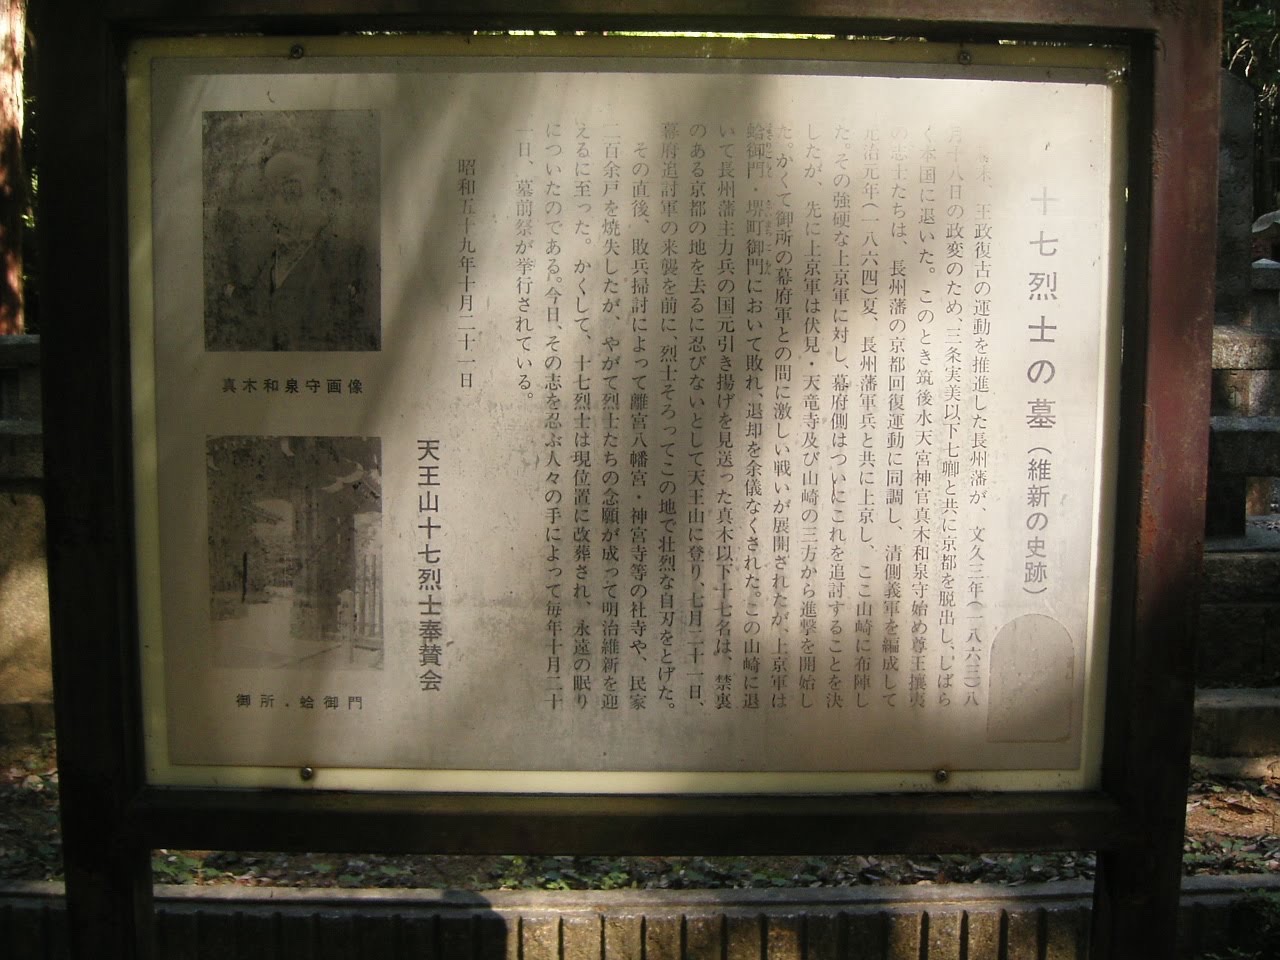 十七烈士の墓（維新の史跡）
末、王政復古の運動を推進した長州藩が、文久三年（一八六三）八
月十八日の政変のため、三条実美以下七卿と共に京都を脱出し、しばら
く本国に退いた。このとき筑後水天宮神官真木和泉守始め尊王攘夷
の志士たちは、長州藩の京都回復運動に同調し、清側義軍を編成して
元治元年（一八六四）夏、長州藩軍兵と共に上京し、ここ山崎に布陣し
た。その強硬な上京軍に対し、幕府側はついにこれを追討することを決
したが、先に上京軍は伏見・天竜寺及び山崎の三方から進撃を開始し
た。かくて御所の幕府軍との間に激しい戦いが展開されたが、上京軍は
蛤御門・堺町御門において敗れ、退却を余儀なくされた。この山崎に退
いて長州藩主力兵の国元引き揚げを見送った真木以下十七名は、禁裏
のある京都の地を去るに忍びないとして天王山に登り、七月二十一日、
幕府追討軍の来襲を前に、烈士そろってこの地で壮烈な自刃をとげた。
その直後、敗兵掃討によって離宮八幡宮・神宮寺等の社寺や、民家
二百余戸を焼失したが、やがて烈士たちの念願が成って明治維新を迎
えるに至った。かくして、十七烈士は現位置に改葬され、永遠の眠り
についたのである。今日、その志を忍ぶ人々の手によって毎年十月二十
一日、墓前祭が挙行されている。
昭和五十九年十月二十一日
天王山十七烈士奉賛会
真木和泉守画像
御所・蛤御門